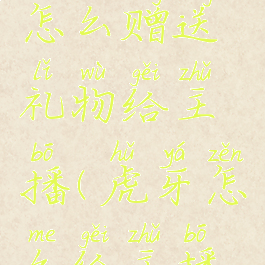 怎么赠送
lǐ wù gěi zhǔ
礼物给主
bō hǔ yá zěn
播(虎牙怎
me gěi zhǔ bō
么给主播